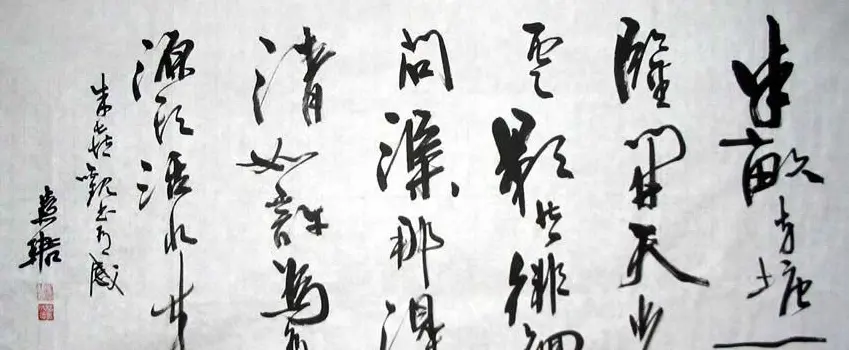 半畝方塘一
鑒開天光
雲影共徘徊
問渠那得
清如許為有
源頭活水來
朱熹觀書有感